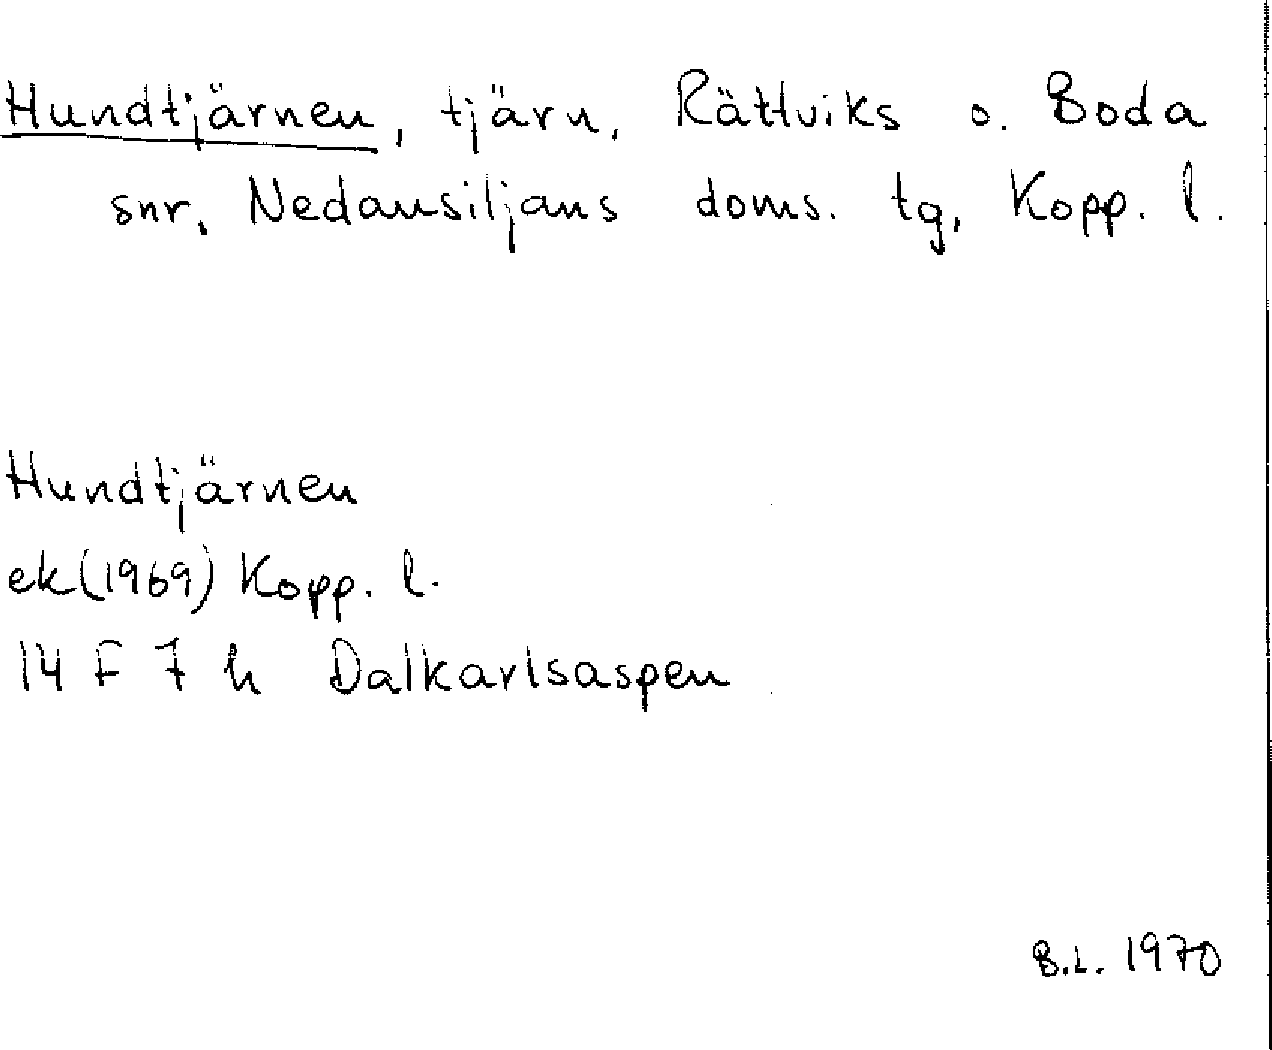 Hundtjärnen, tjärn, Rättviks o. Boda
snr, Nedansiljans doms. tg, Kopp. l.
Hundtjärnen
ek (1969) Kopp. l.
14 F 7 h Dalkarlsaspen
B.L. 1970